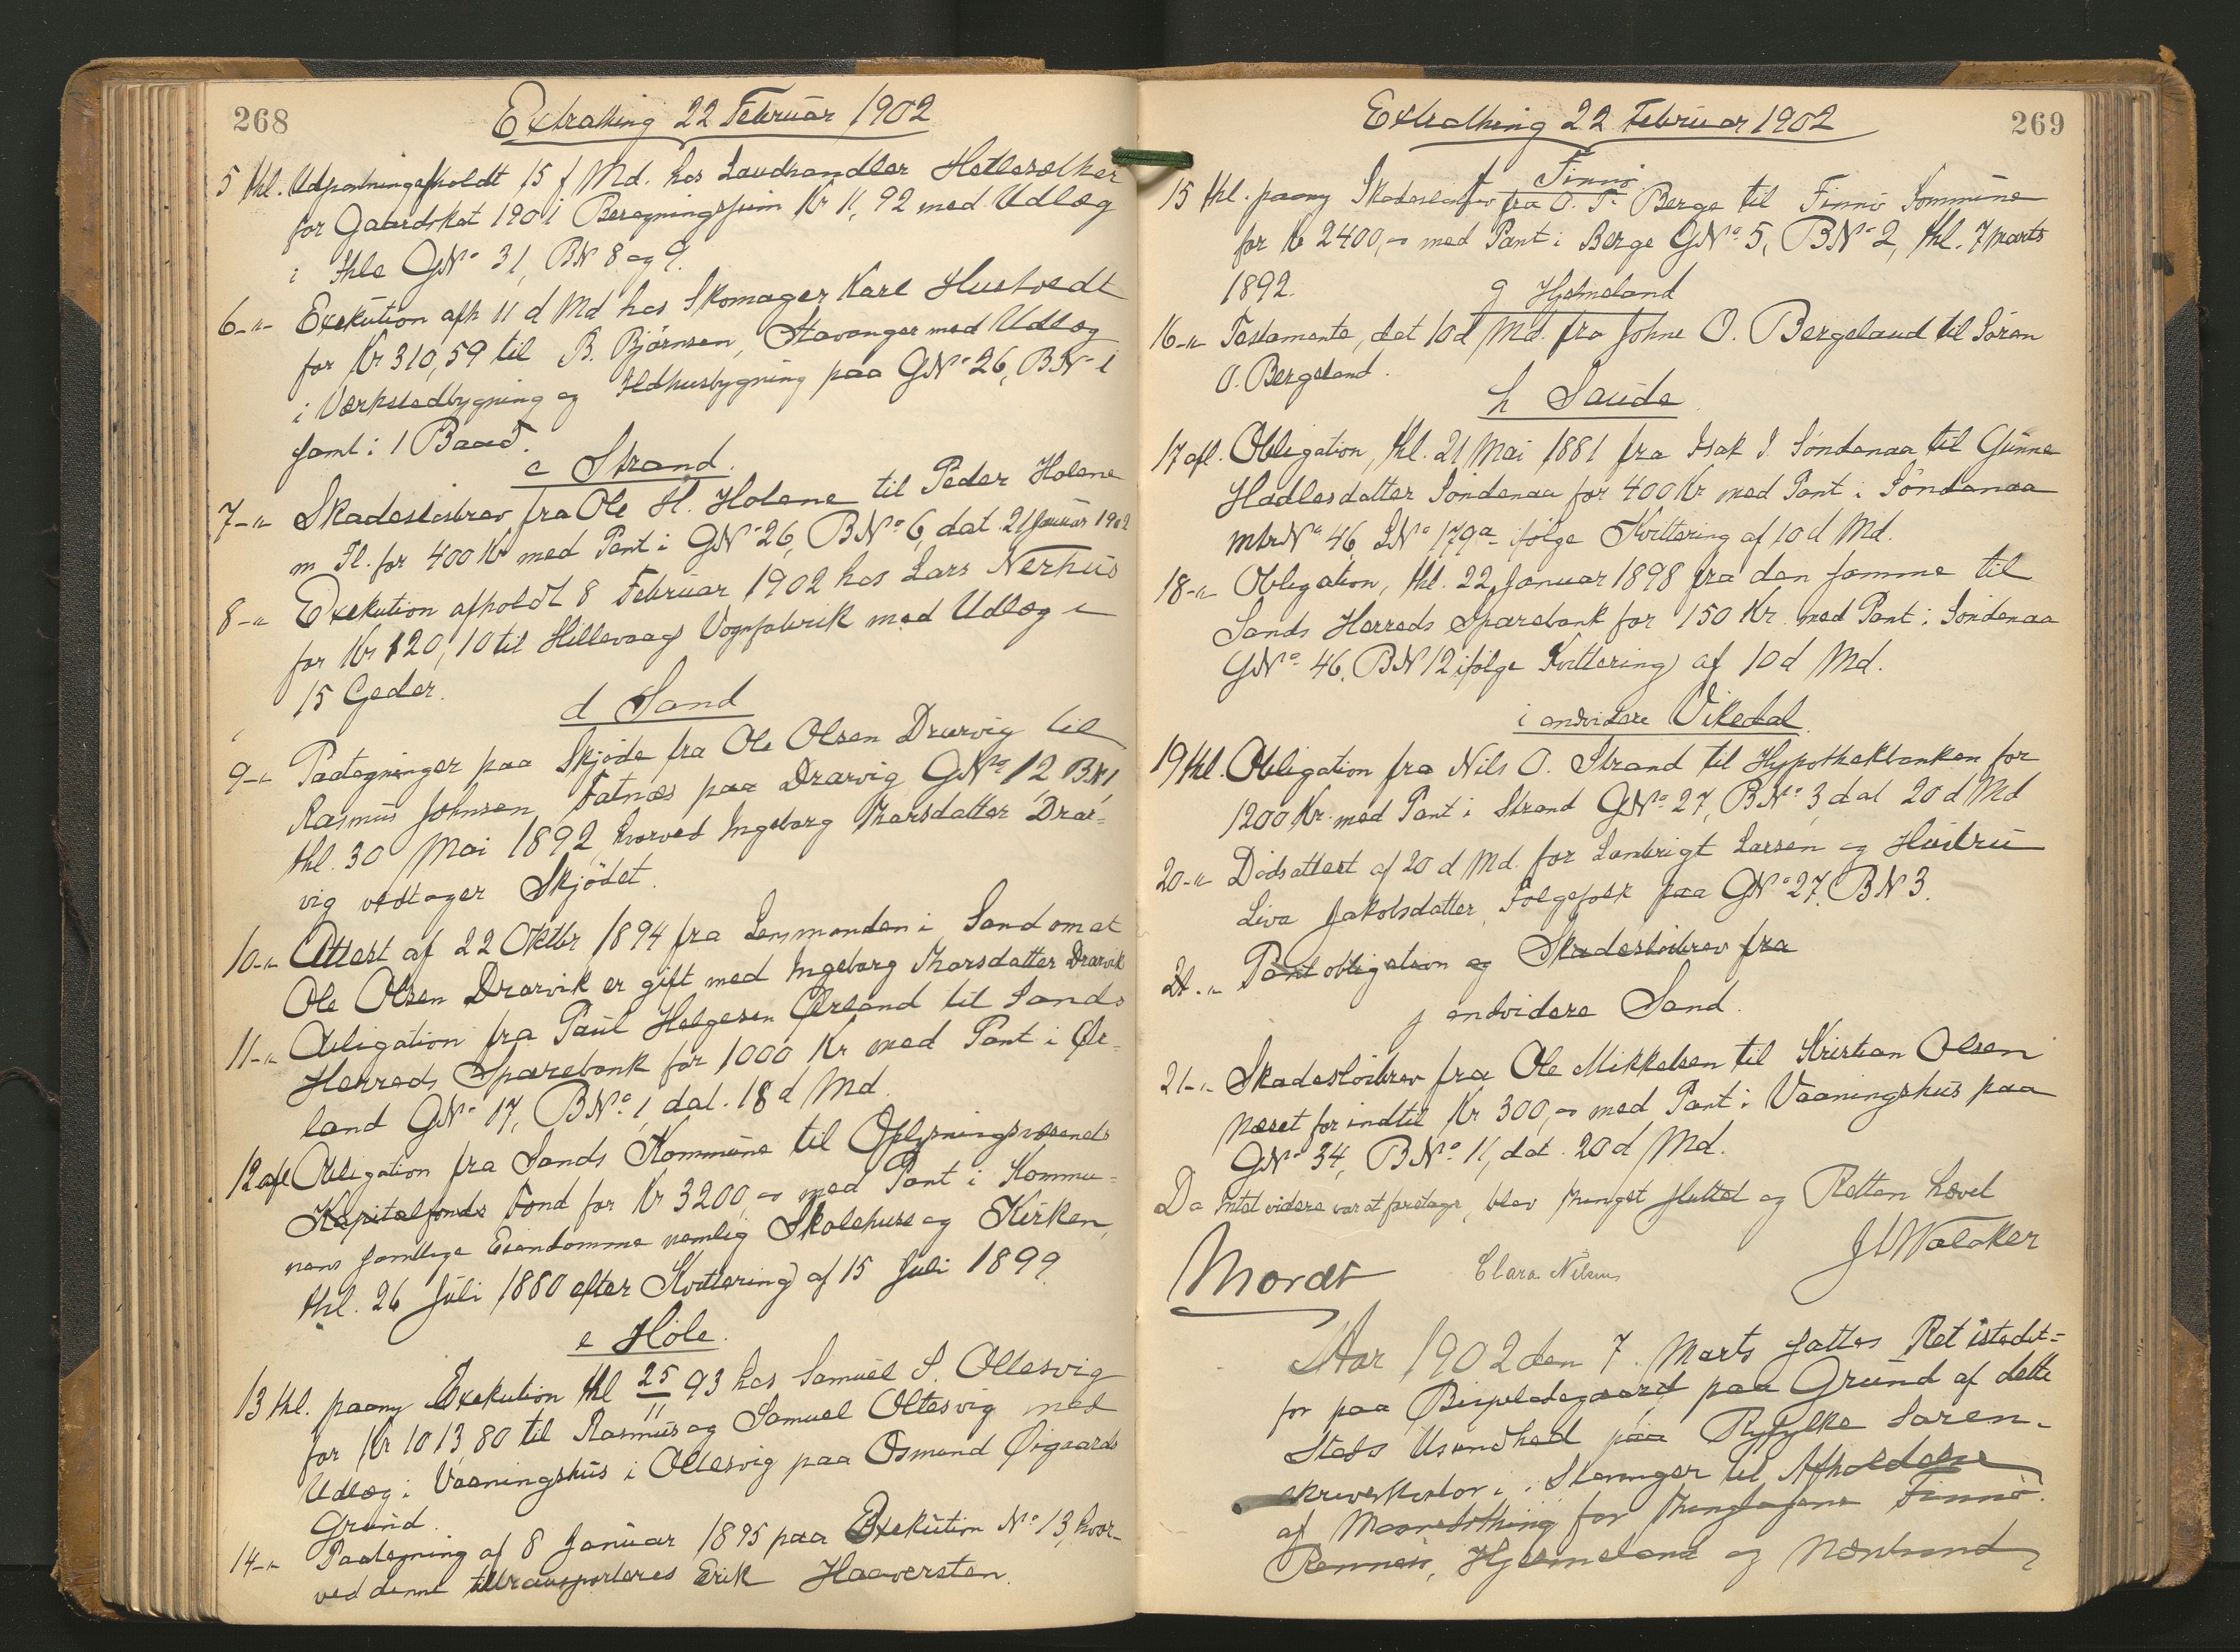 268
Extrathing 22 Februar 1902
5 thl. Udpantning afholdt 15 f Md. hos Landhandler
for Gaardskat 1901 Kr 11,92 med Udlæg
i Hole GNo 31, BN 8 og 9.
6-"- Exekution afh 11 d Md hos Skomager Karl Hustvedt
for Kr 310,59 til B. Bjørnsen, Stavanger med Udlæg
i Værkstedbygning og Ildhusbygning paa GNo 26, BN 1
samt i 1 Baad.
c Strand.
7-"- Skadesløsbrev fra Ole H. Holene til Peder Holene
m Fl. for 400 Kr med Pant i GNo 26, BNo 6, dat. 21 Januar 1902
8-" Exekution afholdt 8 Februar 1902 hos Lars Nerhus
for Kr 120,10 til Hillevaags Vognfabrik med Udlæg i
15 Geder.
d Sand
9-" Paategninger paa Skjøde fra Ole Olsen Drarvig til
Rasmus Johnsen Fatnæs paa Drarvig GNo 12 BN 1,
thl. 30 Mai 1892, hvorved Ingeborg Thorsdatter Drar=
vig vedtager Skjødet.
10-" Attest af 22 Oktbr 1894 fra Lensmanden i Sand om at
Ole Olsen Drarvik er gift med Ingeborg Thorsdatter Drarvik
11-" Obligation fra Paul Helgesen Ørland til Sands
Herreds Sparebank for 1000 Kr med Pant i Ør=
land GNo 17, BNo 1, dat. 18 d Md.
12 afl Obligation fra Sands Kommune til Oplysningsvæsenets
Kapitalfonds Fond for Kr 3200,- med Pant i Kommu=
nens samtlige Eiendomme nemlig Skolehuse og Kirken,
thl. 26 Juli 1880 efter Kvittering af 15 Juli 1899.
e Høle.
13 thl. paany Exekution thl 25/11 93 hos Samuel S. Oltesvig
for Kr 1013,80 til Rasmus og Samuel Oltesvig med
Udlæg i Vaaningshus i Oltesvig paa Osmund Øigaards
Grund.
14-" Paategning af 8 Januar 1895 paa Exekution No 13, hvor-
ved denne tiltransporteres Erik Haaversten.
269
Extrathing 22 Februar 1902
f Finnø
15 thl. paany Skadesløsbrev fra O. T. Berge til Finnø Kommune
for Kr 2400,- med Pant i Berge GNo 5, BNo 2, thl. 7 Marts
1892.
g Hjelmeland
16-" Testamente, dat 10 d Md. fra Johne O. Bergeland til Søren
O. Bergeland.
h Saude
17 afl. Obligation, thl. 21 Mai 1881 fra Isak I. Søndenaa til Gunne
Hadlesdatter Søndenaa for 400 Kr med Pant i Søndenaa
mtr No 46, LNo 179a ifølge Kvittering af 10 d Md.
18-" Obligation, thl. 22 Januar 1898 fra den samme til
Sands Herreds Sparebank for 150 Kr med Pant i Søndenaa
GNo 46, BN 12 ifølge Kvittering af 10 d Md.
i endvidere Vikedal
19 thl. Obligation fra Nils O. Strand til Hypothekbanken for
1200 Kr. med Pant i Strand GNo 27, BNo 3, dat 20 d Md
20-" Dødsattest af 20 d Md. for Lambrigt Larsen og Hustru
Siva Jakobsdatter, Folgefolk paa GNo 27 BN 3.
21-" Pantobligation og Skadesløsbrev fra
j endvidere Sand.
21-" Skadesløsbrev fra Ole Mikkelsen til Kristian Olsen
Næset for indtil Kr 300,- med Pant i Vaaningshus paa
GNo 34, BNo 11, dat. 20 d Md.
Da Intet videre var at foretage, blev thinget sluttet og Retten hævet
Mordt Clara Nilsen
Aar 1902 den 7. Marts sattes Ret istedet=
for paa Bispeladegaard paa Grund af dette
Steds Usundhed paa Ryfylke Soren-
skriverkontor i Stavanger til Afholdelse
af Maanedsthing for Thinglagene Finnø,
Rennesø, Hjelmeland og Nærstrand